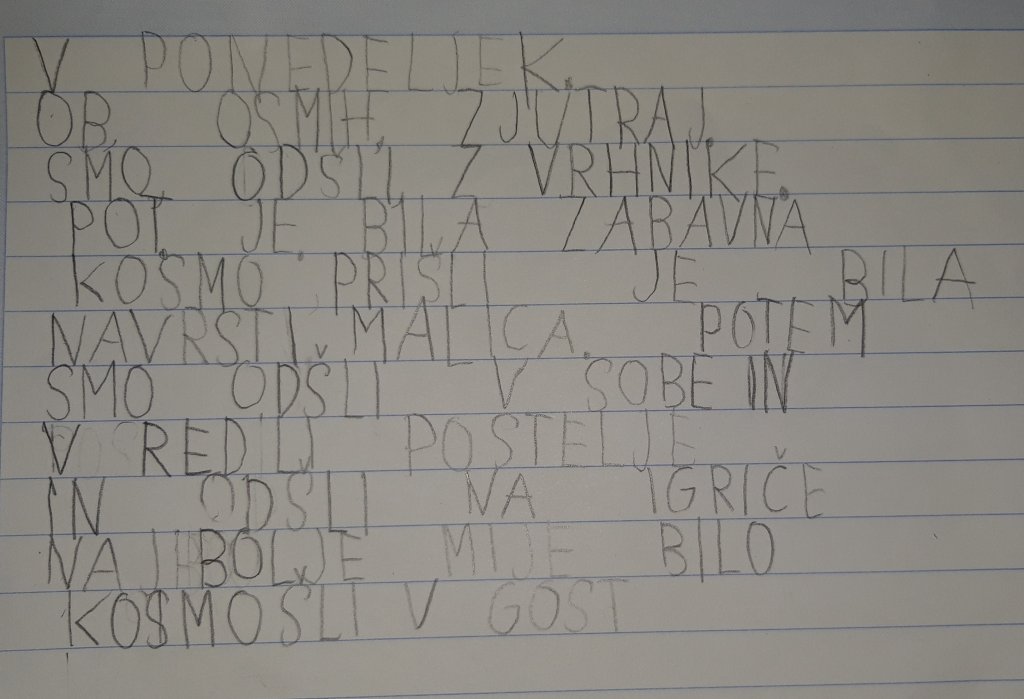 V PONEDELJEK.
OB OSMIH. ZJUTRAJ.
SMO ODŠLI Z VRHNIKE.
POT. JE. BILA ZABAVNA
KOSMO PRIŠLI JE BILA
NAVRSTI MALICA. POTEM
SMO ODŠLI V SOBE IN
V REDILI POSTELJE
IN ODŠLI NA IGRIČE
NAJBOLJE MIJE BILO
KOSMO ŠLI V GOST